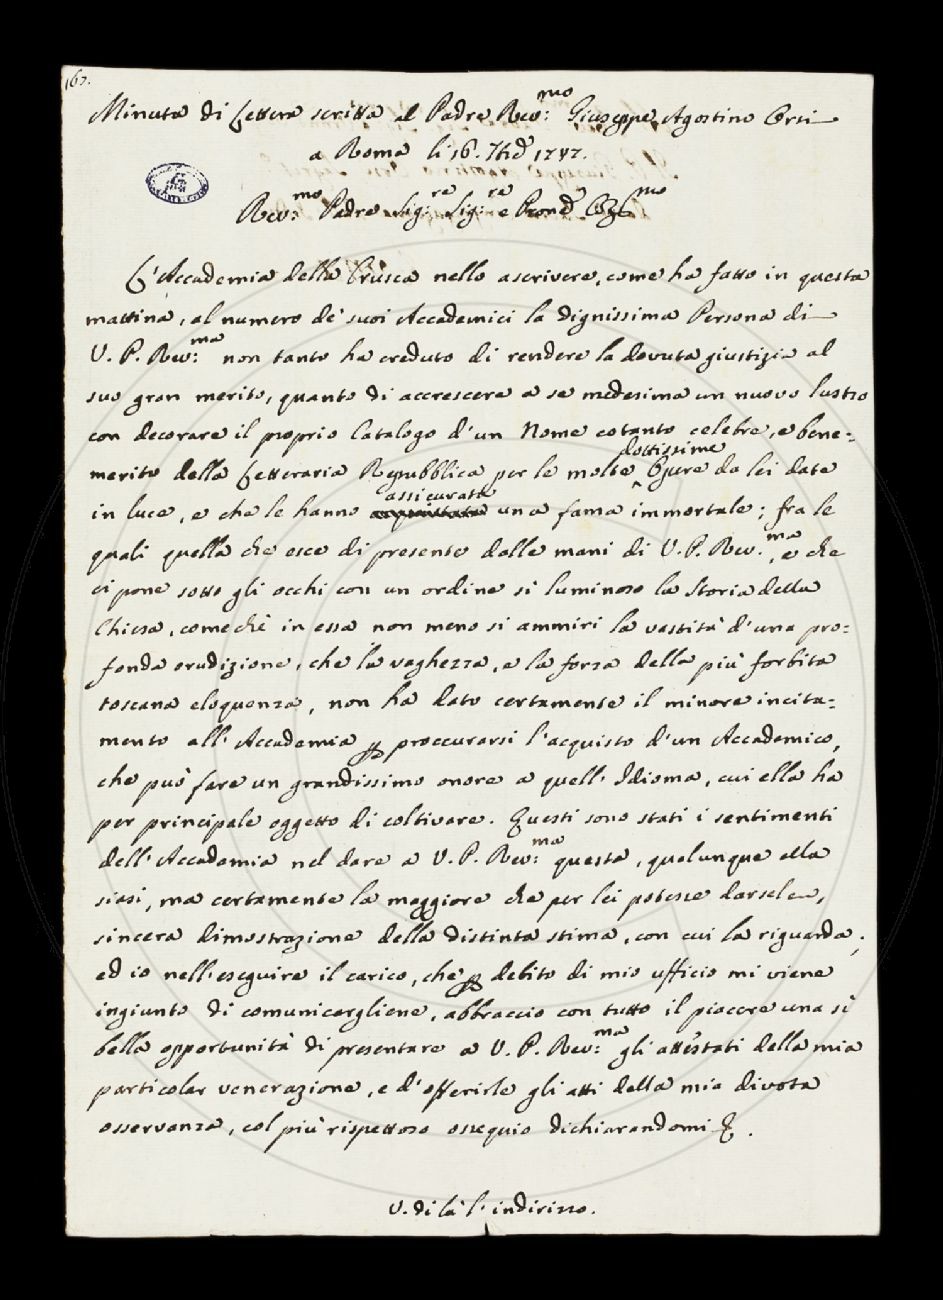 167.
Minuta di Lettera scritta al Padre Rev:mo Giuseppe Agostino Orsi
a Roma li 16. 7bre 1747.
Rev:mo Padre Sig:re Sig:re e Pron
L'Accademia della Crusca nello ascrivere, come ha fatto in questa
mattina, al numero de' suoi Accademici la dignissima Persona di
V. P. Rev:ma non tanto ha creduto di rendere la dovuta giustizia al
suo gran merito, quanto di accrescere a se medesima un nuovo lustro
con decorare il proprio Catalogo d'un Nome cotanto celebre, e bene=
merito della Letteraria Repubblica per le molte dottissime Opere da lei date
in luce, e che le hanno assicurata una fama immortale; fra le
quali quella che esce di presente dalle mani di V. P. Rev:ma, e che
ci pone sotto gli occhi con un ordine si luminoso la Storia della
Chiesa, comechè in essa non meno si ammiri la vastità d'una pro=
fonda erudizione, che la vaghezza, e la forza della più forbita
toscana eloquenza, non ha dato certamente il minore incita=
mento all'Accademia p proccurarsi l'acquisto d'un Accademico,
che può fare un grandissimo onore a quell'Idioma, cui ella ha
per principale oggetto di coltivare. Questi sono stati i sentimenti
dell'Accademia nel dare a V. P. Rev:ma questa, qualunque ella
siasi, ma certamente la maggiore che per lei potesse darsele,
sincera dimostrazione della distinta stima, con cui la riguarda;
ed io nell'eseguire il carico, che p debito di mio ufficio mi viene
ingiunto di comunicargliene, abbraccio con tutto il piacere una sì
bella opportunità di presentare a V. P. Rev:ma gli attestati della mia
particolar venerazione, e d'offerirle gli atti della mia divota
osservanza, col più rispettoso ossequio dichiarandomi &.
V. di là l'indirizzo.